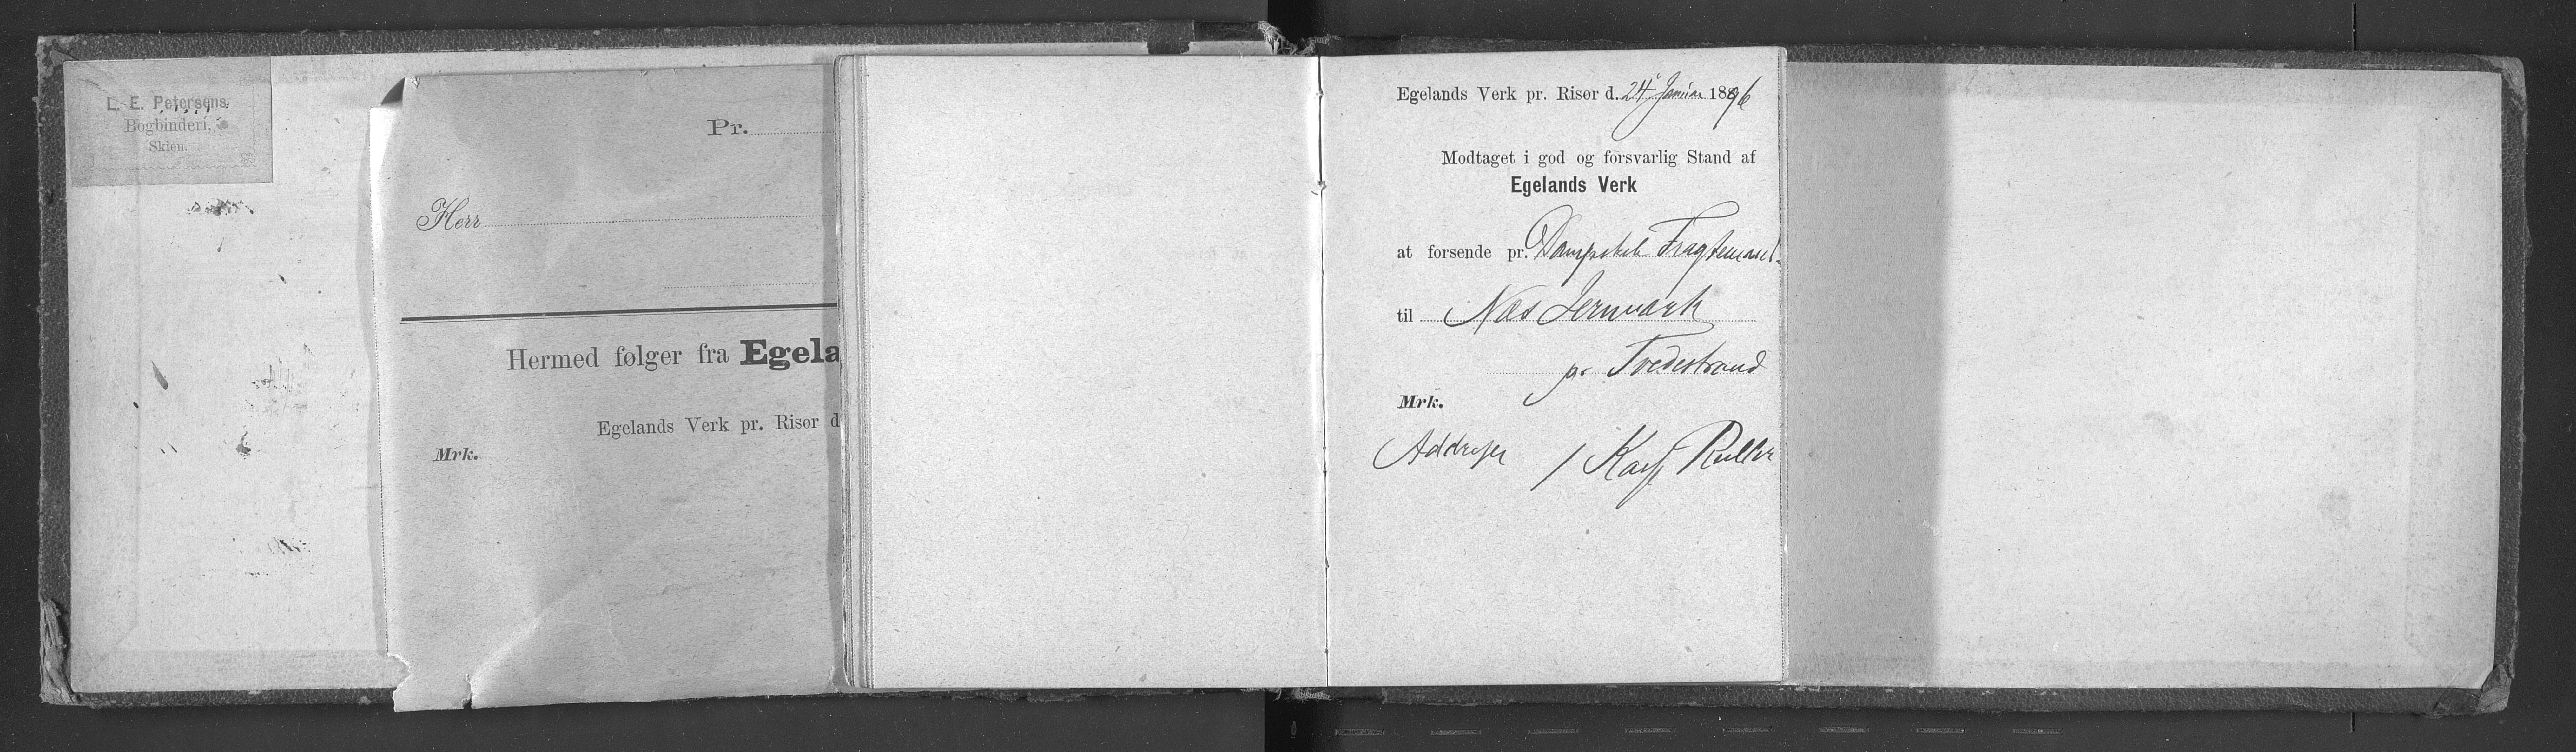 L. E. Petersens
Bogbinderi,
Skien.
Pr.
Herr
Hermed følger fra Egela
Egelands Verk pr. Risør d
Mrk.
Egelands Verk pr. Risør d. 24 Januar 1896
Modtaget i god og forsvarlig Stand af
Egelands Verk
at forsende pr. Dampskib Fragtemand
til Næs Jernværk
pr Tvedestrand
Mrk.
Addresse 1 Kasse Ruller